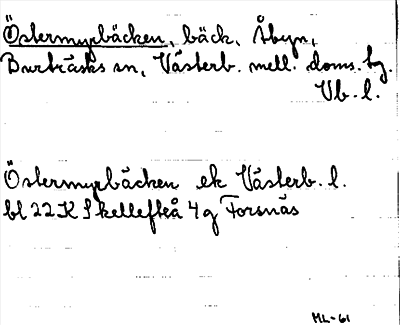 Östermyrbäcken, bäck, Åbyn,
Burträsks sn, Västerb. mell. doms. tg.
Vb. l.
Östermyrbäcken ek Västerb. l.
bl 22K Skellefteå 4g Forsnäs
ML-61